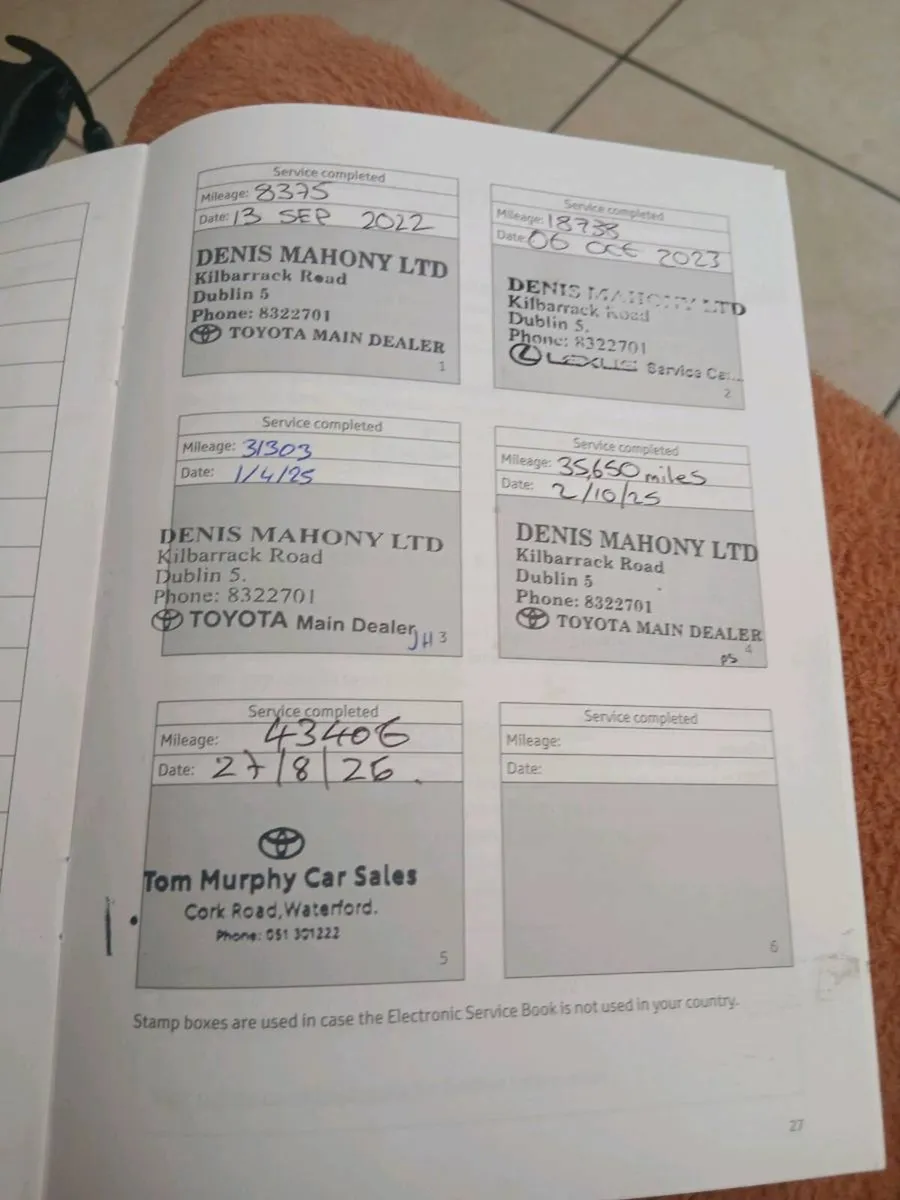 Service completed
Mileage: 8375
Date: 13 SEP 2022
DENIS MAHONY LTD
Kilbarrack Road
Dublin 5
Phone: 8322701
TOYOTA MAIN DEALER
1
Service completed
Mileage: 18738
Date: 06 Oct 2023
DENIS MAHONY LTD
Kilbarrack Road
Dublin 5.
Phone: 8322701
LEXUS Service
2
Service completed
Mileage: 31303
Date: 1/4/25
DENIS MAHONY LTD
Kilbarrack Road
Dublin 5.
Phone: 8322701
TOYOTA Main Dealer
JH 3
Service completed
Mileage: 35,650 miles
Date: 2/10/25
DENIS MAHONY LTD
Kilbarrack Road
Dublin 5
Phone: 8322701
TOYOTA MAIN DEALER
4
Service completed
Mileage: 43406
Date: 27/8/26
Tom Murphy Car Sales
Cork Road, Waterford.
Phone: 051 301222
5
Service completed
Mileage:
Date:
6
Stamp boxes are used in case the Electronic Service Book is not used in your country.
27